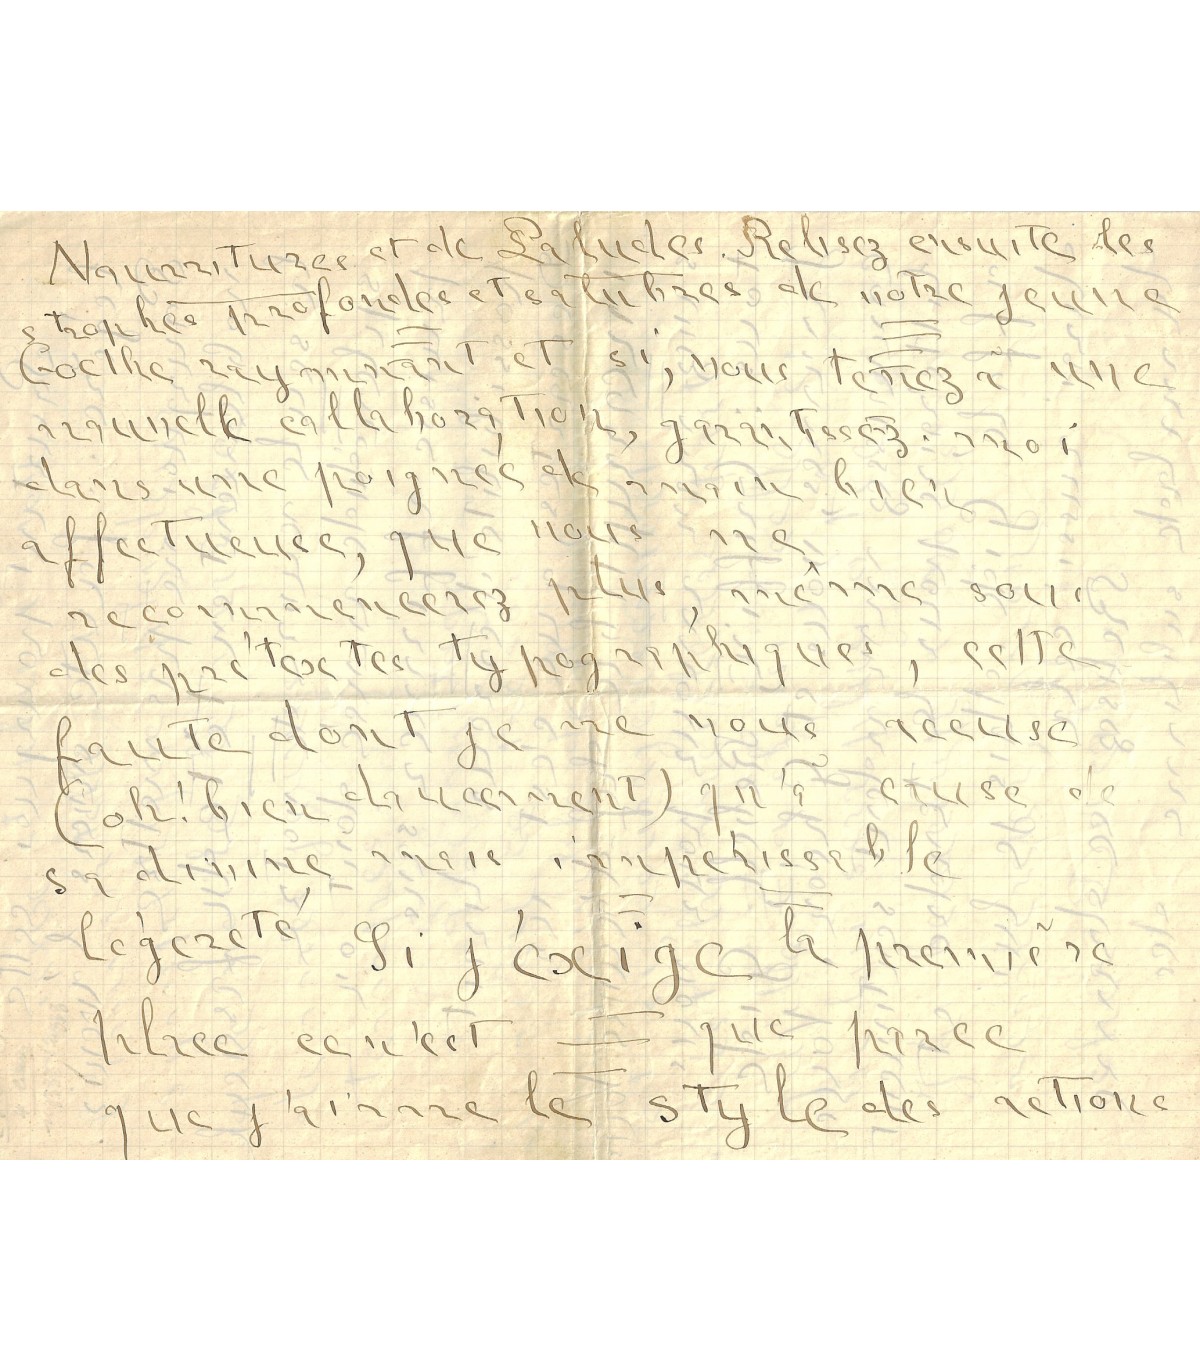 Nourritures et de Paludes. Relisez ensuite les
strophes profondes et salubres de notre jeune
Goethe raymmant et si, vous tenez à une
nouvelle collaboration, garantissez-moi
dans une poignée de main bien
affectueuse, que vous ne
recommencerez plus, même sous
des prétextes typographiques, cette
faute dont je ne vous accuse
(oh! bien doucement) qu'à cause de
sa divine, mais impérissable
légèreté. Si j'exige la première
place ce n'est que parce
que j'aime le style des actions